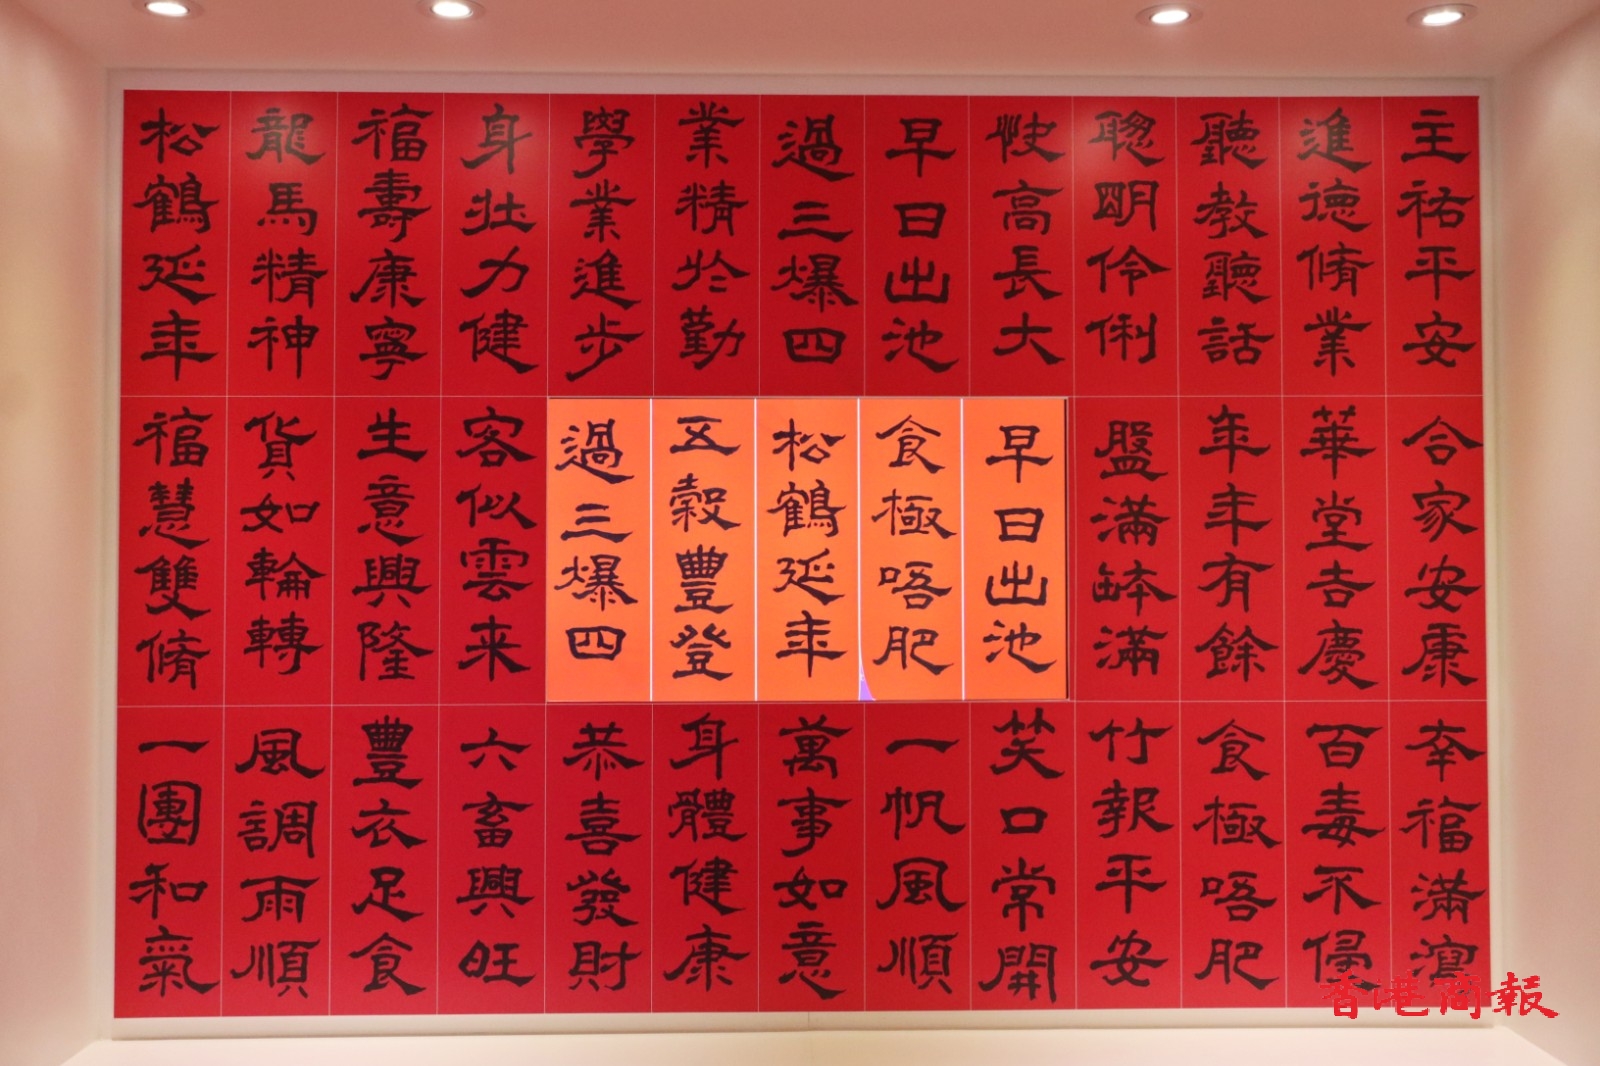 主祐平安
進德脩業
聽教聽話
聰明伶俐
快高長大
早日出池
過三爆四
業精於勤
學業進步
身壯力健
福壽康寧
龍馬精神
松鶴延年
合家安康
華堂吉慶
年年有餘
盤滿缽滿
早日出池
食極唔肥
松鶴延年
五穀豐登
過三爆四
客似雲来
生意興隆
貨如輪轉
福慧雙脩
幸福滿瀉
百毒不侵
食極唔肥
竹報平安
笑口常開
一帆風順
萬事如意
身體健康
恭喜發財
六畜興旺
豐衣足食
風調雨順
一團和氣
香港商報